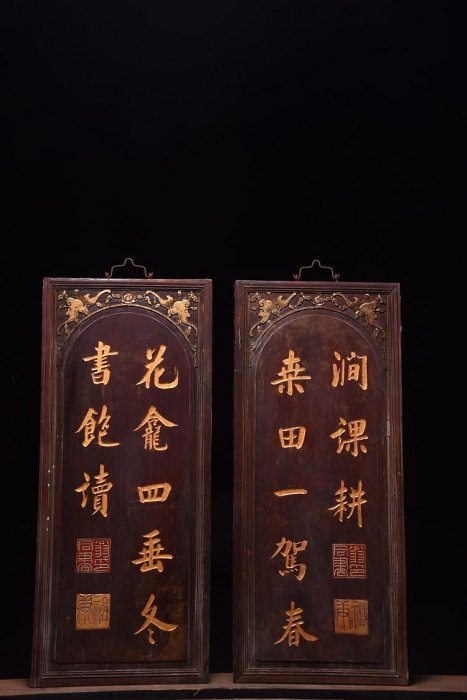 桒田一駕春
澗課耕
花龕四垂冬
書飽讀